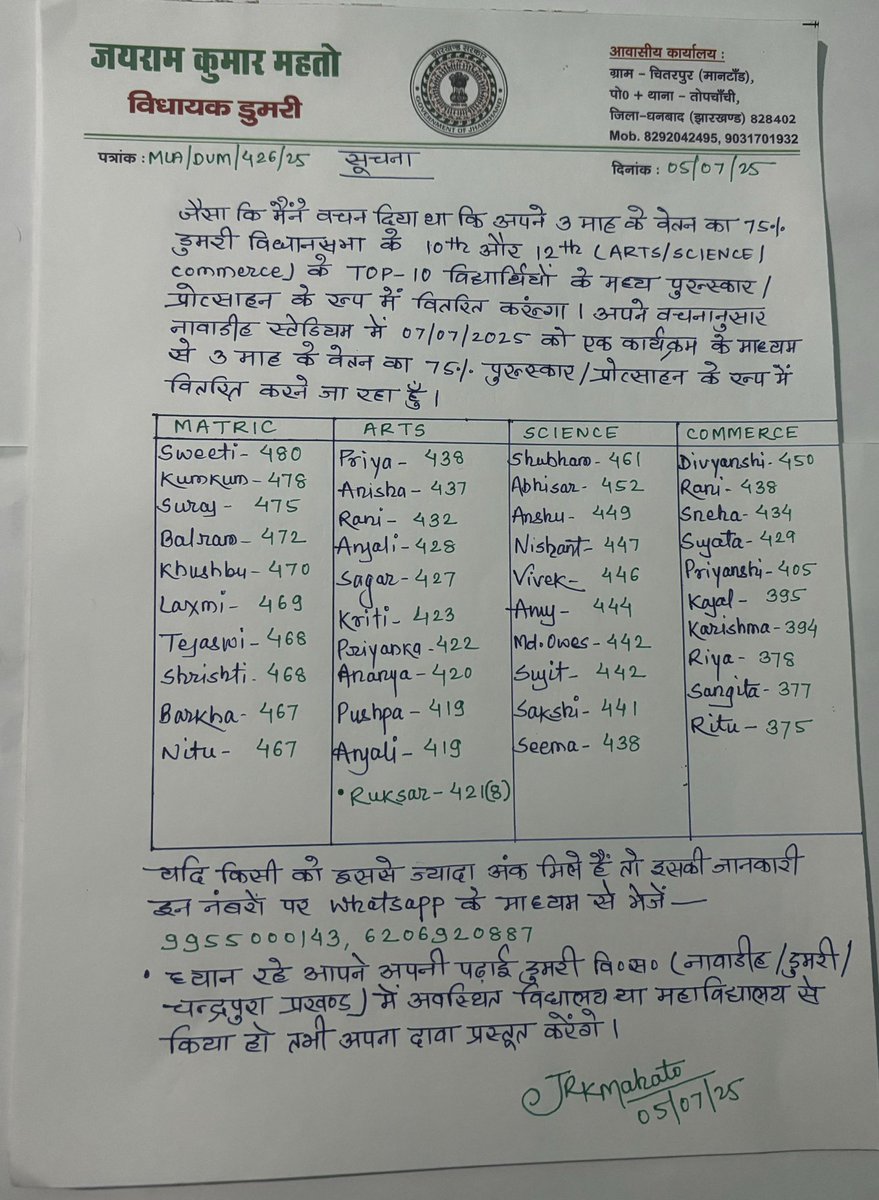 जयराम कुमार महतो
विधायक डुमरी
झारखण्ड सरकार
GOVERNMENT OF JHARKHAND
आवासीय कार्यालय :
ग्राम – चितरपुर (मानटाँड),
पो० + थाना – तोपचाँची,
जिला-धनबाद (झारखण्ड) 828402
Mob. 8292042495, 9031701932
पत्रांक : MLA/DUM/426/25
सूचना
दिनांक : 05/07/25
जैसा कि मैंने वचन दिया था कि अपने 3 माह के वेतन का 75%
डुमरी विधानसभा के 10th और 12th (ARTS/SCIENCE/
commerce) के TOP-10 विद्यार्थियों के मध्य पुरुस्कार/
प्रोत्साहन के रूप में वितरित करूंगा । अपने वचनानुसार
नावाडीह स्टेडियम में 07/07/2025 को एक कार्यक्रम के माध्यम
से 3 माह के वेतन का 75% पुरुस्कार/प्रोत्साहन के रूप में
वितरित करने जा रहा हूँ ।
MATRIC
Sweeti- 480
Kumkum- 478
Suraj- 475
Balram- 472
Khushbu- 470
Laxmi- 469
Tejaswi- 468
Shrishti- 468
Barkha- 467
Nitu- 467
ARTS
Priya- 438
Anisha- 437
Rani- 432
Anjali- 428
Sagar- 427
Kriti- 423
Priyanka- 422
Ananya- 420
Pushpa- 419
Anjali- 419
• Ruksar- 421(8)
SCIENCE
Shubham- 461
Abhisar- 452
Anshu- 449
Nishant- 447
Vivek- 446
Anuj- 444
Md. Owes- 442
Sujit- 442
Sakshi- 441
Seema- 438
COMMERCE
Divyanshi- 450
Rani- 438
Sneha- 434
Sujata- 429
Priyanshi- 405
Kajal- 395
Karishma- 394
Riya- 378
Sangita- 377
Ritu- 375
यदि किसी को इससे ज्यादा अंक मिले हैं तो इसकी जानकारी
इन नंबरों पर Whatsapp के माध्यम से भेजें —
9955000143, 6206920887
• ध्यान रहे आपने अपनी पढ़ाई डुमरी वि०स० (नावाडीह/डुमरी/
चन्द्रपुरा प्रखण्ड) में अवस्थित विद्यालय या महाविद्यालय से
किया हो तभी अपना दावा प्रस्तूत करेंगे ।
JRKMahato
05/07/25